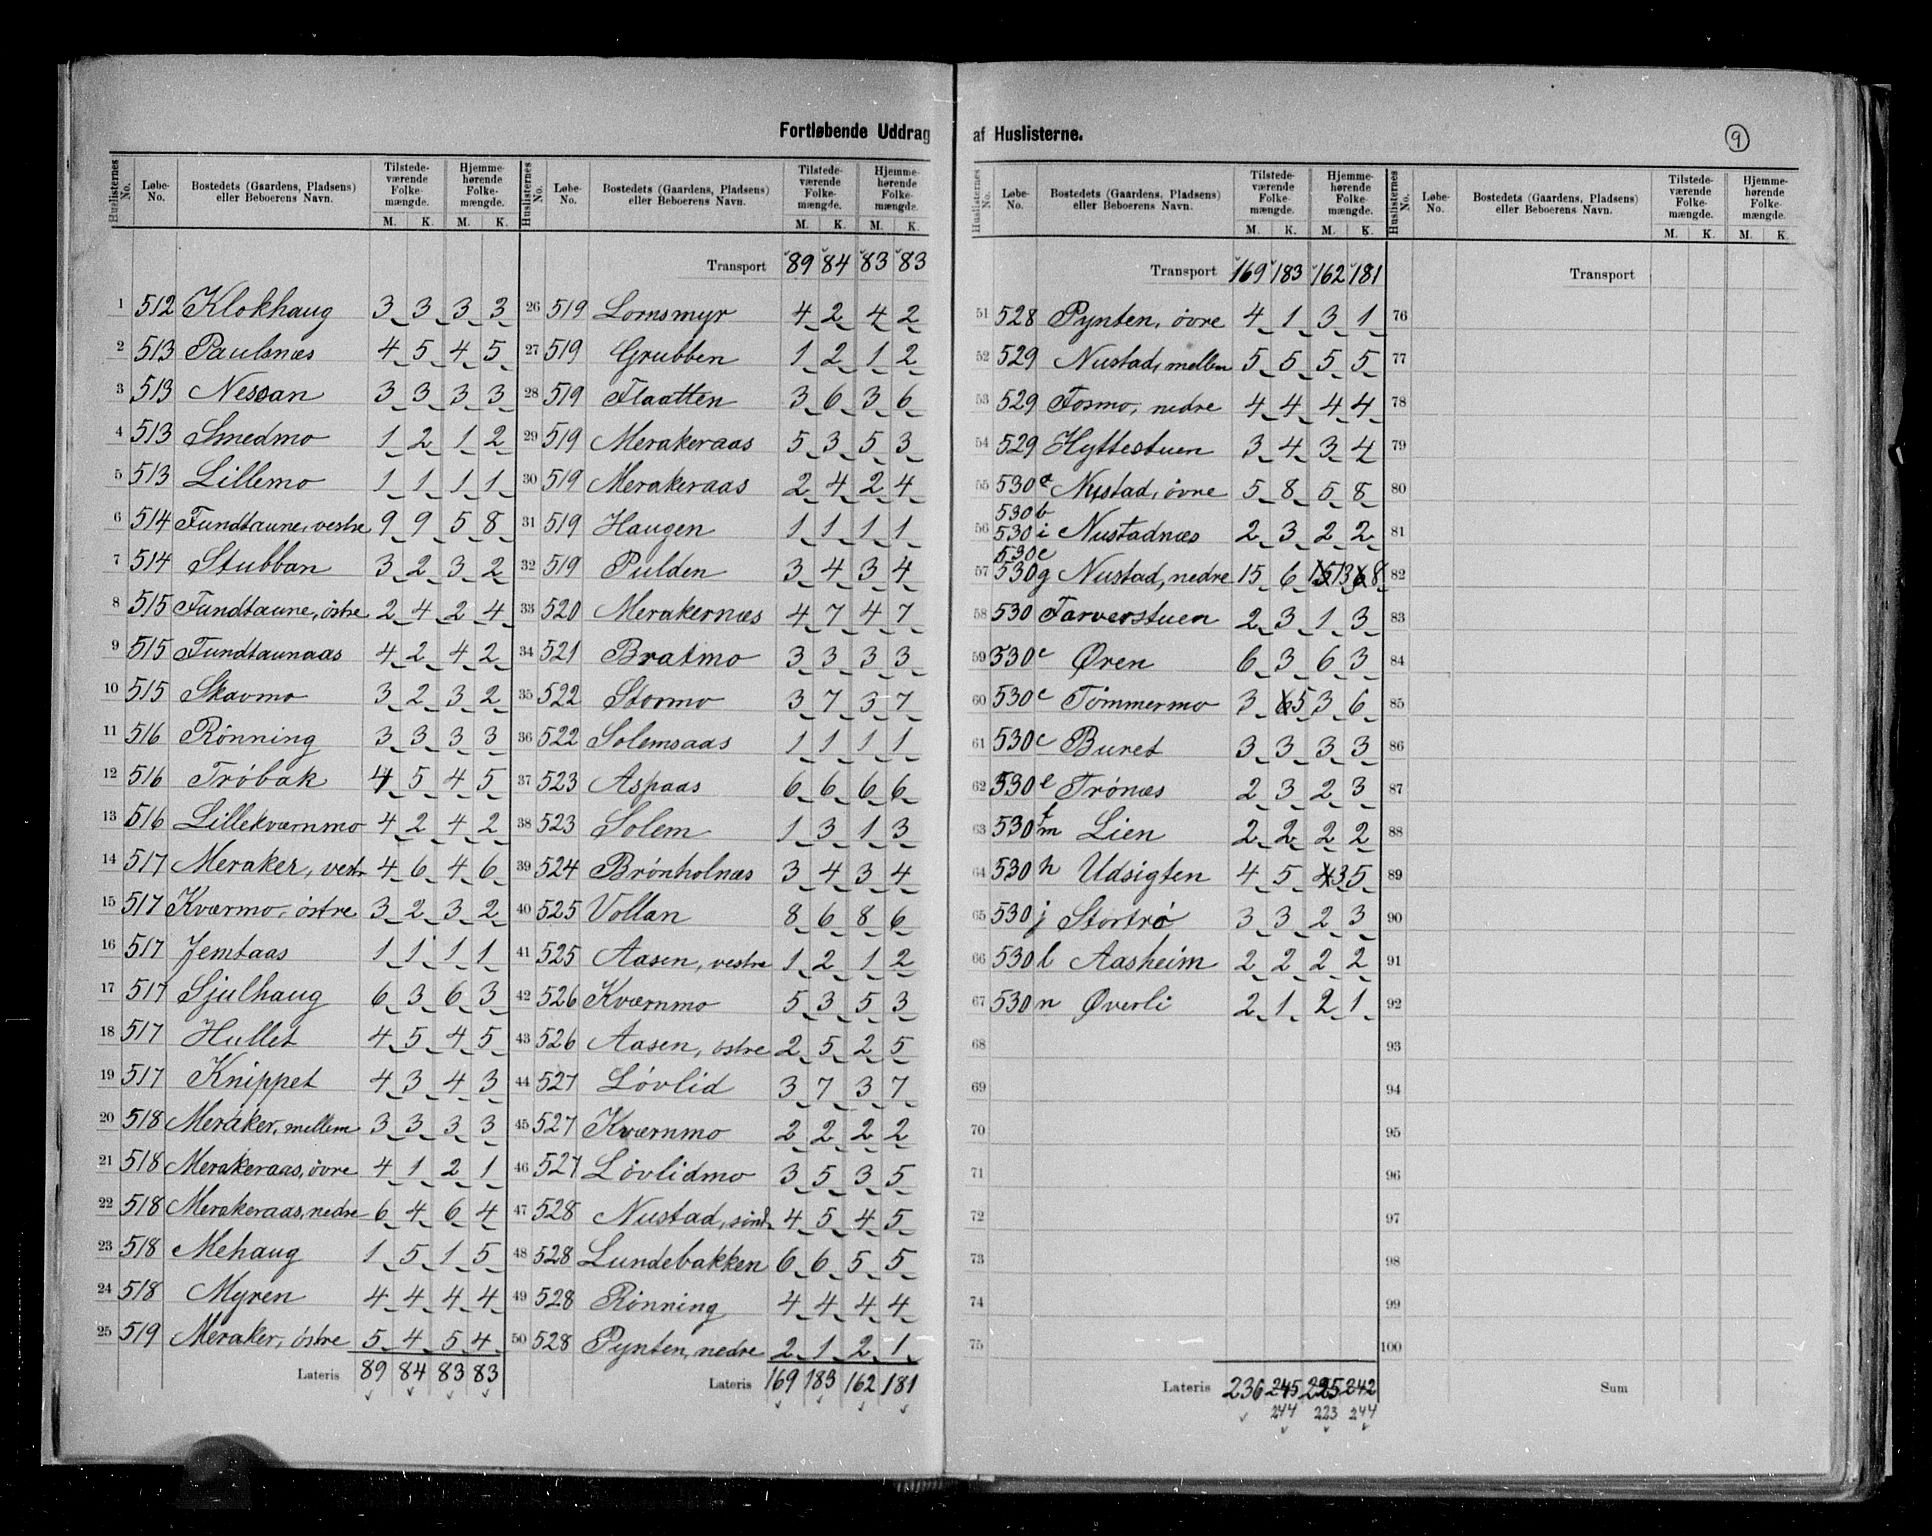 Fortløbende Uddrag af Huslisterne.
9
Huslisternes No. Løbe-No. Bostedets (Gaardens, Pladsens) eller Beboerens Navn. Tilstede-værende Folke-mængde. M. K. Hjemme-hørende Folke-mængde. M. K.
1 512 Klokhaug 3 3 3 3
2 513 Paulsnæs 4 5 4 5
3 513 Nessan 3 3 3 3
4 513 Smedmo 1 2 1 2
5 513 Lillemo 1 1 1 1
6 514 Fundtaune, vestre 9 9 5 8
7 514 Stubban 3 2 3 2
8 515 Fundtaune, östre 2 4 2 4
9 515 Fundtaunaas 4 2 4 2
10 515 Skavmo 3 2 3 2
11 516 Rønning 3 3 3 3
12 516 Trøbak 4 5 4 5
13 516 Lillekværnmo 4 2 4 2
14 517 Meraker, vestr 4 6 4 6
15 517 Kværmo, östre 3 2 3 2
16 517 Jemtaas 1 1 1 1
17 517 Sjulhaug 6 3 6 3
18 517 Hullet 4 5 4 5
19 517 Knippet 4 3 4 3
20 518 Meraker, mellem 3 3 3 3
21 518 Merakeraas, övre 4 1 2 1
22 518 Merakeraas, nedre 6 4 6 4
23 518 Mehaug 1 5 1 5
24 518 Myren 4 4 4 4
25 519 Meraker, östre 5 4 5 4
Lateris 89 84 83 83
Huslisternes No. Løbe-No. Bostedets (Gaardens, Pladsens) eller Beboerens Navn. Tilstede-værende Folke-mængde. M. K. Hjemme-hørende Folke-mængde. M. K.
Transport 89 84 83 83
26 519 Lornsmyr 4 2 4 2
27 519 Grubben 1 2 1 2
28 519 Flaatten 3 6 3 6
29 519 Merakeraas 5 3 5 3
30 519 Merakeraas 2 4 2 4
31 519 Haugen 1 1 1 1
32 519 Pulden 3 4 3 4
33 520 Merakernæs 4 7 4 7
34 521 Bratmo 3 3 3 3
35 522 Stormo 3 7 3 7
36 522 Solemsaas 1 1 1 1
37 523 Aspaas 6 6 6 6
38 523 Solem 1 3 1 3
39 524 Brønholnæs 3 4 3 4
40 525 Vollan 8 6 8 6
41 525 Aasen, vestre 1 2 1 2
42 526 Kværnmo 5 3 5 3
43 526 Aasen, östre 2 5 2 5
44 527 Lövlid 3 7 3 7
45 527 Kværnmo 2 2 2 2
46 527 Lövlidmo 3 5 3 5
47 528 Nustad, sönd. 4 5 4 5
48 528 Lundebakken 6 6 5 5
49 528 Rønning 4 4 4 4
50 528 Pynten, nedre 2 1 2 1
Lateris 169 183 162 181
Huslisternes No. Løbe-No. Bostedets (Gaardens, Pladsens) eller Beboerens Navn. Tilstede-værende Folke-mængde. M. K. Hjemme-hørende Folke-mængde. M. K.
Transport 169 183 162 181
51 528 Pynten, övre 4 1 3 1
52 529 Nustad, mellem 5 5 5 5
53 529 Fosmo, nedre 4 4 4 4
54 529 Hyttestuen 3 4 3 4
55 530 a Nustad, övre 5 8 5 8
530 b
56 530 i Nustadnæs 2 3 2 2
530 c
57 530 g Nustad, nedre 15 6 15 13 6 8
58 530 Farverstuen 2 3 1 3
59 530 c Øren 6 3 6 3
60 530 c Tömmermo 3 6 5 3 6
61 530 c Buret 3 3 3 3
62 530 e Trønæs 2 3 2 3
63 530 f m Lien 2 2 2 2
64 530 h Udsigten 4 5 4 3 5
65 530 j Stortrø 3 3 2 3
66 530 l Aasheim 2 2 2 2
67 530 n Øverli 2 1 2 1
68
69
70
71
72
73
74
75
Lateris 236 245 225 242
244 223 244
Huslisternes No. Løbe-No. Bostedets (Gaardens, Pladsens) eller Beboerens Navn. Tilstede-værende Folke-mængde. M. K. Hjemme-hørende Folke-mængde. M. K.
Transport
76
77
78
79
80
81
82
83
84
85
86
87
88
89
90
91
92
93
94
95
96
97
98
99
100
Sum